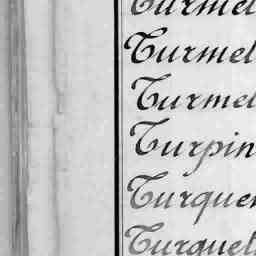 Turmel
Turmel
Turmel
Turpin
Turquer
Turquet